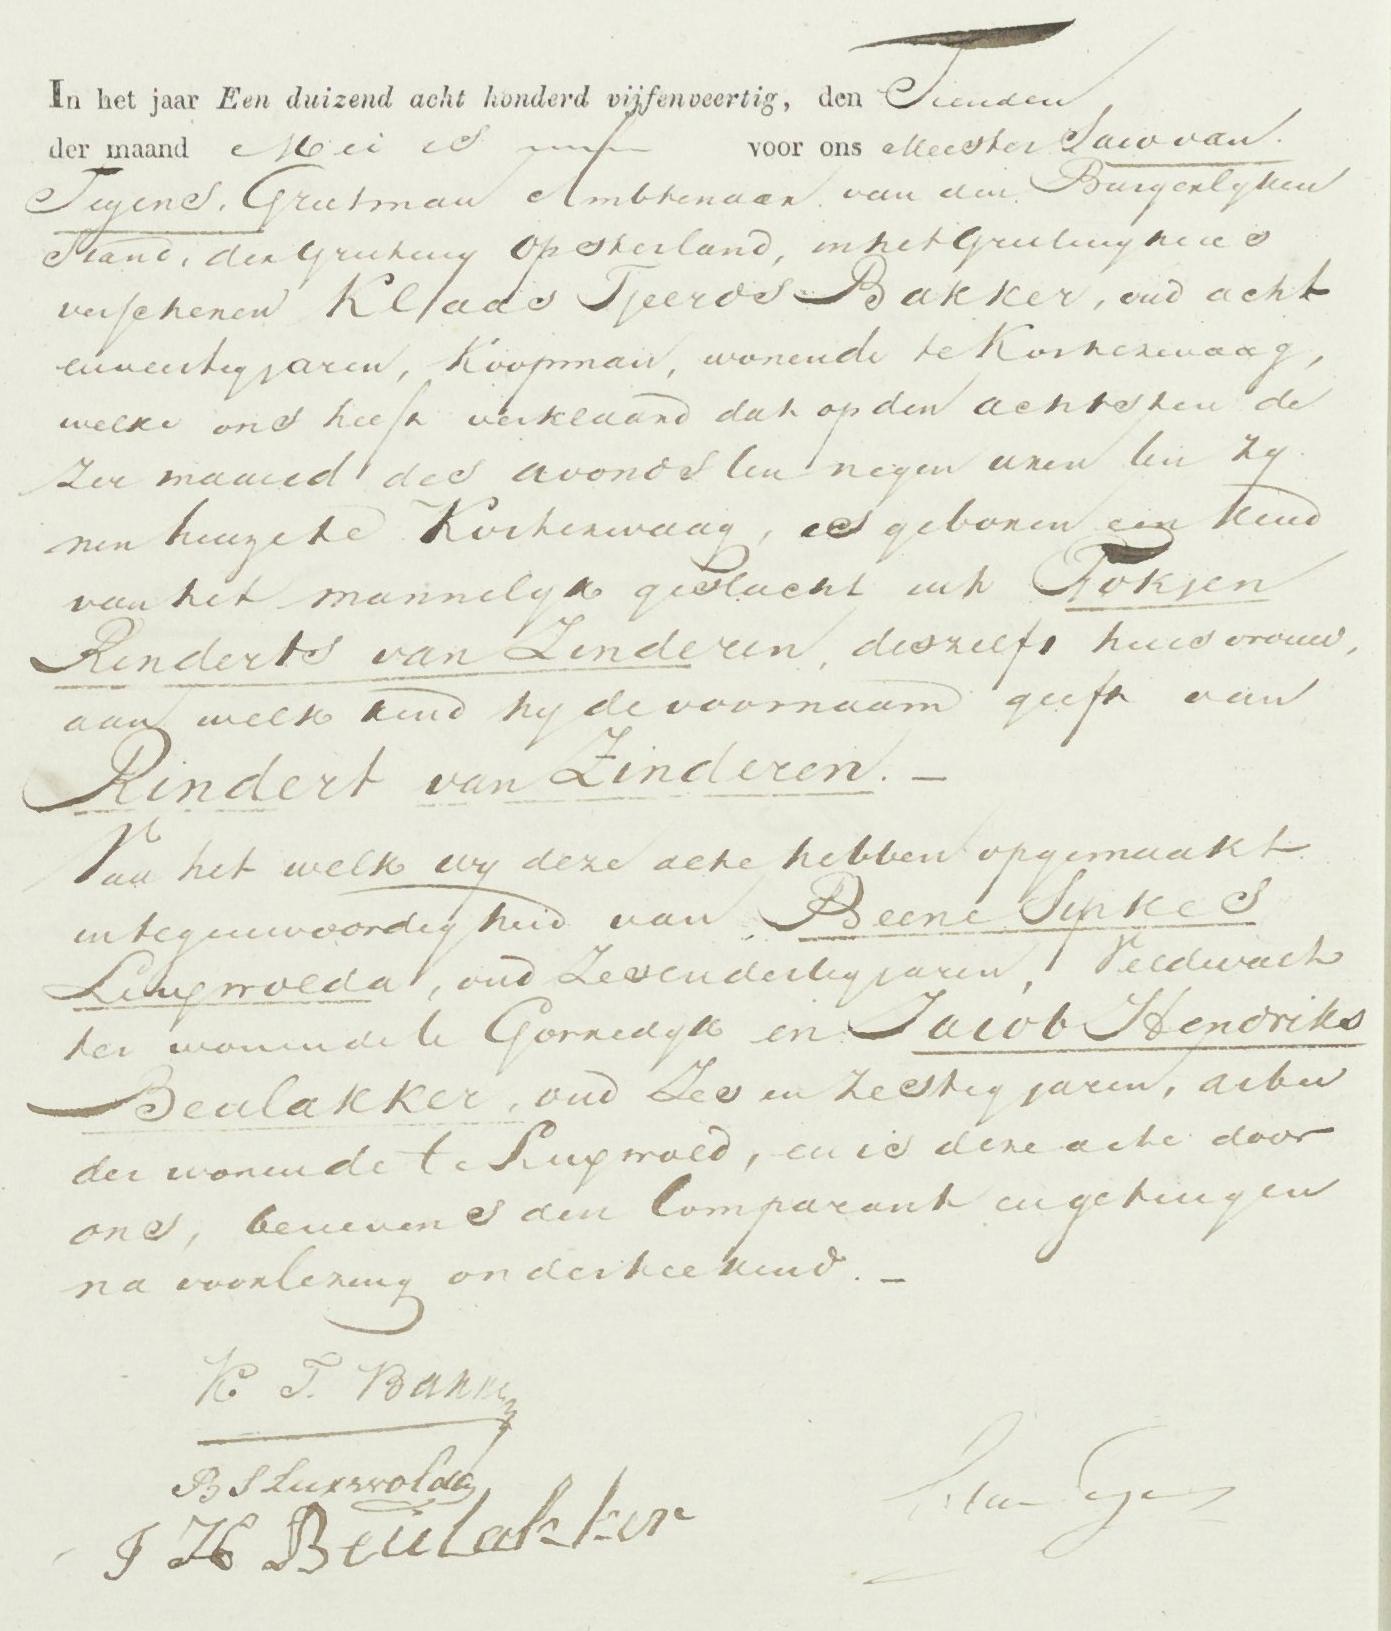 In het jaar Een duizend acht honderd vijfenveertig, den Tienden
der maand Mei is voor ons Meester Saco van
Teyens, Grietman Ambtenaar van den Burgerlyken
Stand, der Grieteny Opsterland, in het Grietenyhuis
verschenen Klaas Tjeerds Bakker, oud acht
enveertig jaren, Koopman, wonende te Kortezwaag,
welke ons heeft verklaard dat op den achtsten de
zer maand des avonds ten negen uren ten zy
nen huize te Kortezwaag, is geboren een kind
van het mannelyk geslacht uit Fokjen
Rinderts van Zinderen, deszelfs huisvrouw,
aan welk kind hy de voornaam geeft van
Rindert van Zinderen. —
Van het welk wy deze acte hebben opgemaakt
in tegenwoordigheid van Beene Sipkes
Luxwolda, oud Zesendertig jaren, Veldwach
ter wonende te Gorredyk en Jacob Hendriks
Beulakker, oud Zes en zestig jaren, arbei
der wonende te Luxwold, en is deze acte door
ons, benevens den Comparant en getuigen
na voorlezing onderteekend. —
K T. Bakker
B S Luxwolda
J H Beulakker
S van Teyens